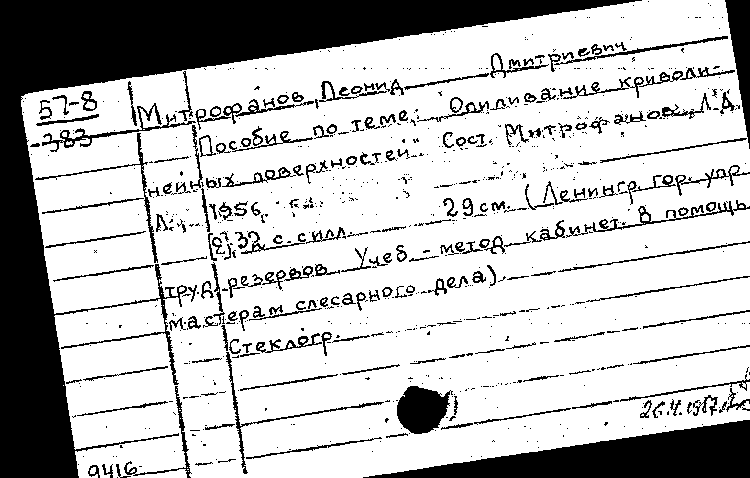 57-8
383
Митрофанов, Леонид Дмитриевич
Пособие по теме: „Опиливание криволи-
нейных поверхностей". Сост. Митрофанов, Л.Д.
Л., 1956,
32 с. с илл. 29 см. (Ленингр. гор. упр.
труд. резервов Учеб. - метод. кабинет. В помощь
мастерам слесарного дела).
Стеклогр.
9416